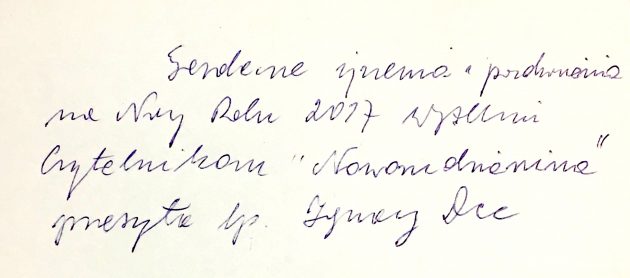 Serdeczne życzenia i pozdrowienia
na Nowy Rok 2017 wszystkim
Czytelnikom "Nowosądeczanina"
przesyła bp. Ignacy Dec